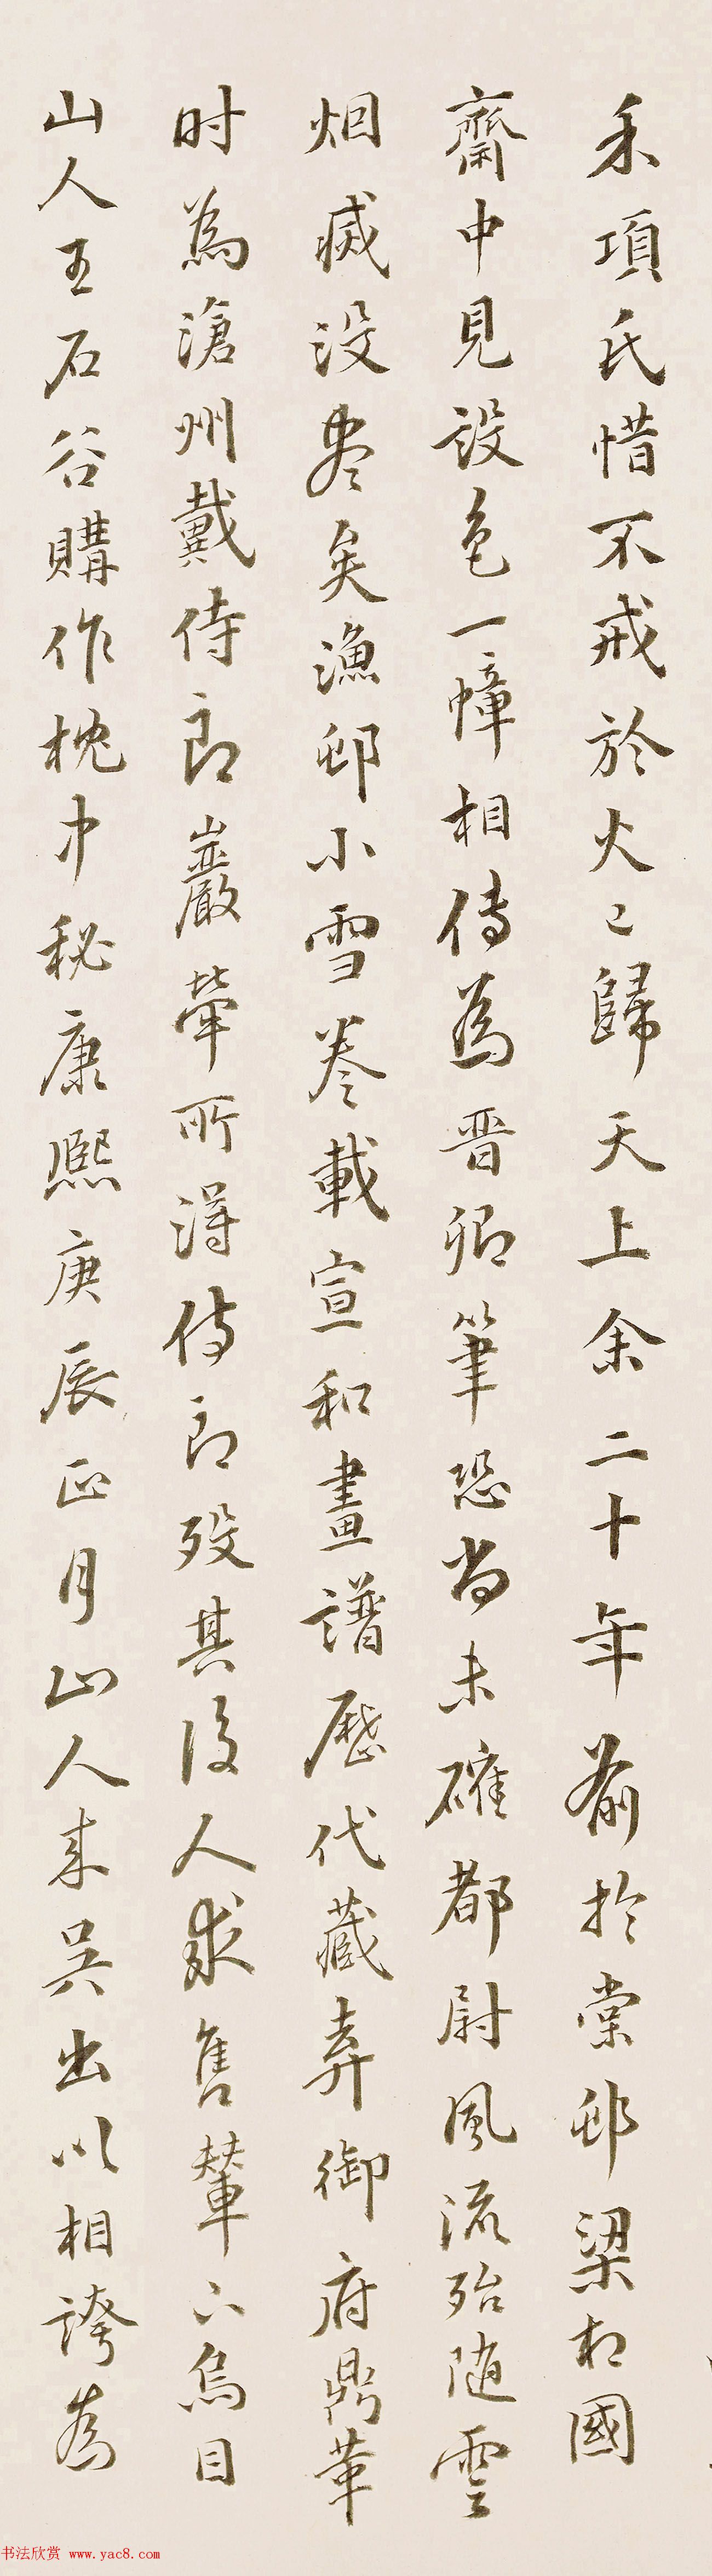 禾項氏惜不戒於火已歸天上余二十年前於棠邨梁相國
齋中見設色一幛相傳為晉卿筆恐尚未確都尉風流殆随雲
烟滅没盡矣漁邨小雪卷載宣和畫譜歷代藏弆御府鼎革
时為滄州戴侍郎巖犖所得侍郎歿其後人求售輦下烏目
山人王石谷購作枕中秘康熙庚辰正月山人来吳出以相誇為
书法欣赏 www.yac8.com